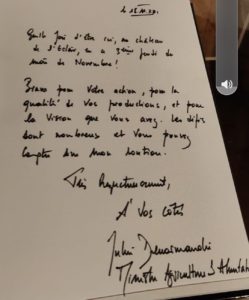 Quelle joie d'être ici, au château
de St Estève, en ce 3ème jeudi du
mois de Novembre !
Bravo pour votre action, pour la
qualité de vos productions, et pour
la vision que vous avez. Les défis
sont nombreux et vous pouvez
compter sur mon soutien.
Très respectueusement,
A vos côtés
Ministre